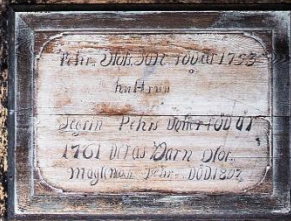 Pehr Olofs Son född 1753
hustrun
Segrin Pehrs Doter FÖD Åt
1761 Detas Barn Olof
Magdalena Pehr DÖD 18